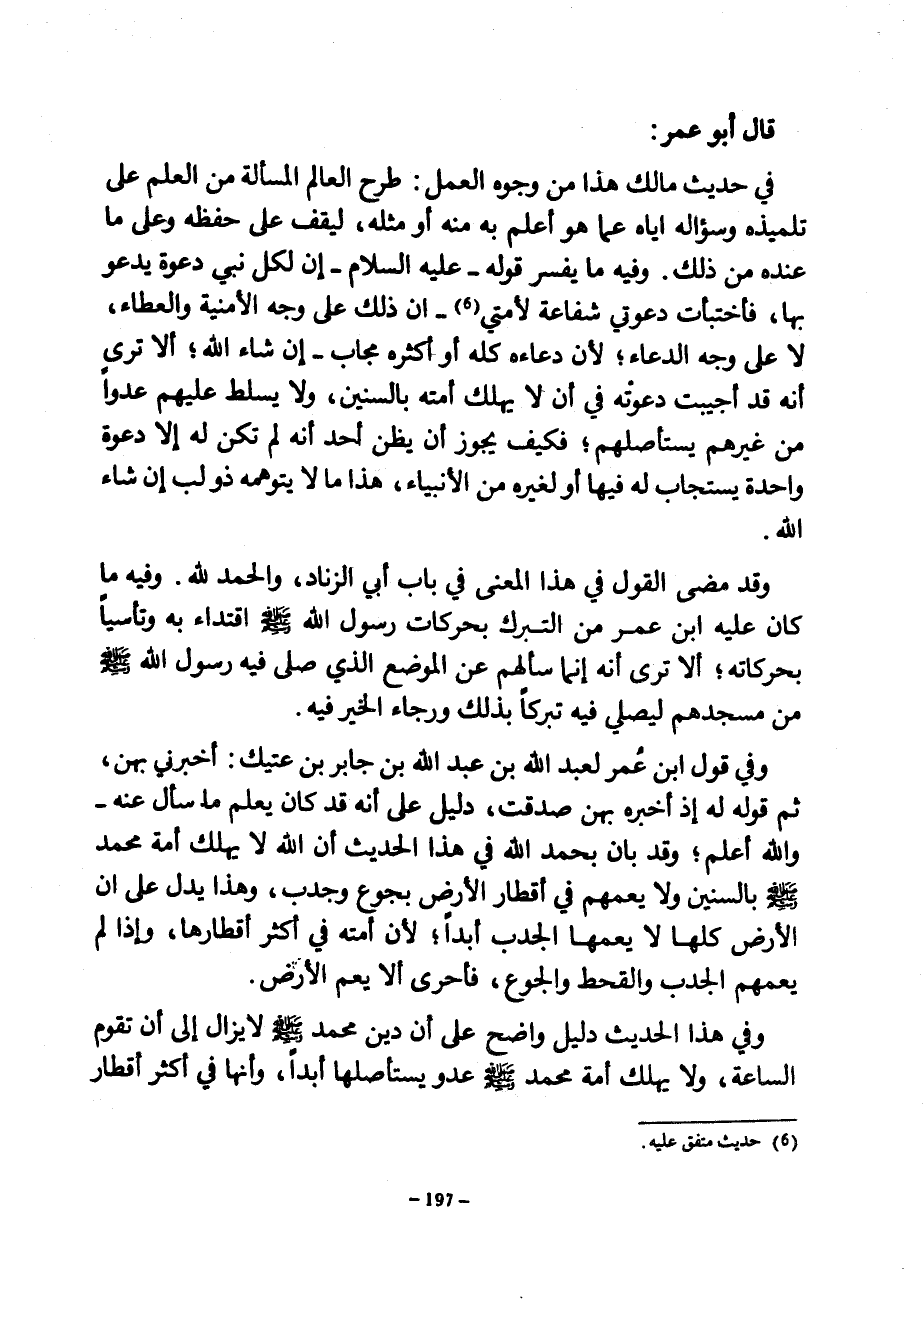 قال أبو عمر :
في حديث مالك هذا من وجوه العمل : طرح العالم المسألة من العلم على
تلميذه وسؤاله اياه عما هو أعلم به منه أو مثله ، ليقف على حفظه وعلى ما
عنده من ذلك . وفيه ما يفسر قوله ـ عليه السلام ـ إن لكل نبي دعوة يدعو
بها ، فأختبأت دعوتي شفاعة لأمتي (6) ـ ان ذلك على وجه الأمنية والعطاء ،
لا على وجه الدعاء ؛ لأن دعاءه كله أو أكثره مجاب ـ إن شاء الله ؛ ألا ترى
أنه قد أجيبت دعوتُه في أن لا يهلك أمته بالسنين ، ولا يسلط عليهم عدواً
من غيرهم يستأصلهم ؛ فكيف يجوز أن يظن أحد أنه لم تكن له إلا دعوة
واحدة يستجاب له فيها أو لغيره من الأنبياء ، هذا ما لا يتوهمه ذو لب إن شاء
الله .
وقد مضى القول في هذا المعنى في باب أبي الزناد ، والحمد لله . وفيه ما
كان عليه ابن عمر من التبرك بحركات رسول الله ﷺ اقتداء به وتأسياً
بحركاته ؛ ألا ترى أنه إنما سألهم عن الموضع الذي صلى فيه رسول الله ﷺ
من مسجدهم ليصلي فيه تبركاً بذلك ورجاء الخير فيه .
وفي قول ابن عُمر لعبد الله بن عبد الله بن جابر بن عتيك : أخبرني بهن ،
ثم قوله له إذ أخبره بهن صدقت ، دليل على أنه قد كان يعلم ما سأل عنه ـ
والله أعلم ؛ وقد بان بحمد الله في هذا الحديث أن الله لا يهلك أمة محمد
ﷺ بالسنين ولا يعمهم في أقطار الأرض بجوع وجدب ، وهذا يدل على ان
الأرض كلها لا يعمها الجدب أبداً ؛ لأن أمته في أكثر أقطارها ، وإذا لم
يعمهم الجدب والقحط والجوع ، فأحرى ألا يعم الأرض .
وفي هذا الحديث دليل واضح على أن دين محمد ﷺ لايزال إلى أن تقوم
الساعة ، ولا يهلك أمة محمد ﷺ عدو يستأصلها أبداً ، وأنها في أكثر أقطار
(6) حديث متفق عليه .
– 197 –